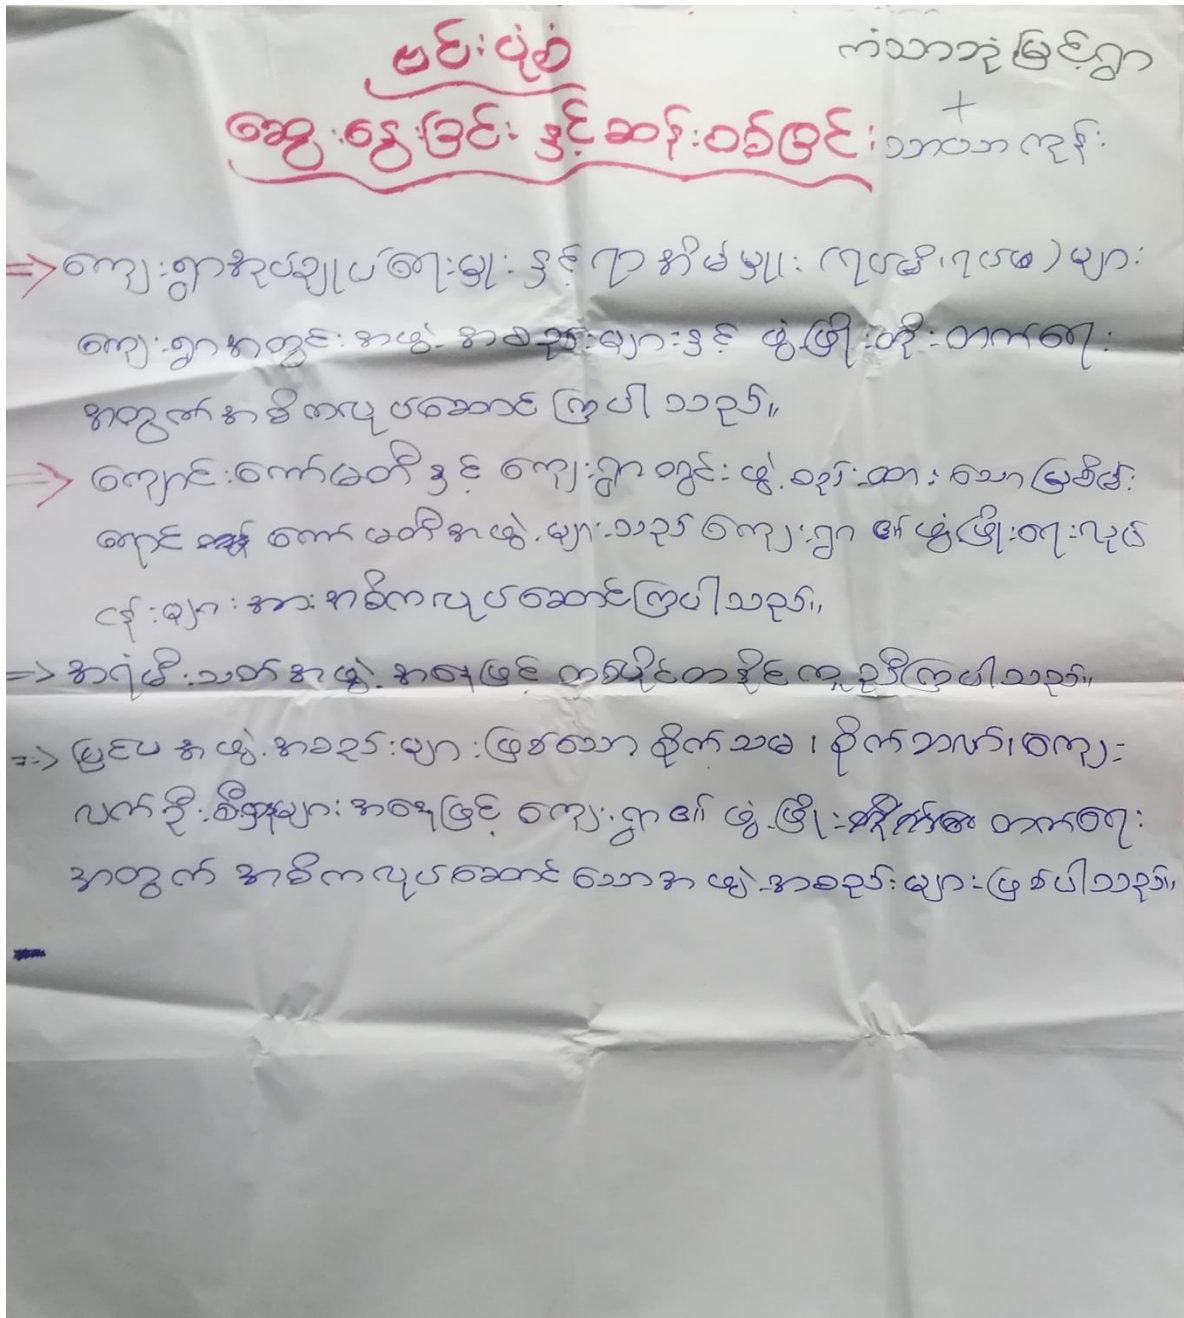 ဗင်းပုံစံ
ကံသာဘုံမြင့်ရွာ
+
ဆွေးနွေးခြင်း နှင့် ဆန်းစစ်ခြင်း
သာယာကုန်း
⇒ ကျေးရွာအုပ်ချုပ်ရေးမှူး နှင့် ရာအိမ်မှူး (ရပ်မိ၊ ရပ်ဖ) များ
ကျေးရွာအတွင်း အဖွဲ့အစည်းများနှင့် ဖွံ့ဖြိုးတိုးတက်ရေး
အတွက် အဓိကလုပ်ဆောင်ကြပါသည်။
⇒ ကျောင်းကော်မတီနှင့် ကျေးရွာတွင်း ဖွဲ့စည်းထားသော မြစိမ်း
ရောင် ကော်မတီအဖွဲ့များသည် ကျေးရွာ၏ ဖွံ့ဖြိုးရေးလုပ်
ငန်းများအား အဓိကလုပ်ဆောင်ကြပါသည်။
⇒ အရံမီးသတ်အဖွဲ့အနေဖြင့် တစ်ပိုင်တနိုင်ကူညီကြပါသည်။
⇒ ပြင်ပအဖွဲ့အစည်းများဖြစ်သော စိုက်သမ၊ စိုက်ဘဏ်၊ ကျေး
လက်ဦးစီးဌာနများအနေဖြင့် ကျေးရွာ၏ ဖွံ့ဖြိုး တက်ရေး
အတွက် အဓိကလုပ်ဆောင်သောအဖွဲ့အစည်းများဖြစ်ပါသည်။